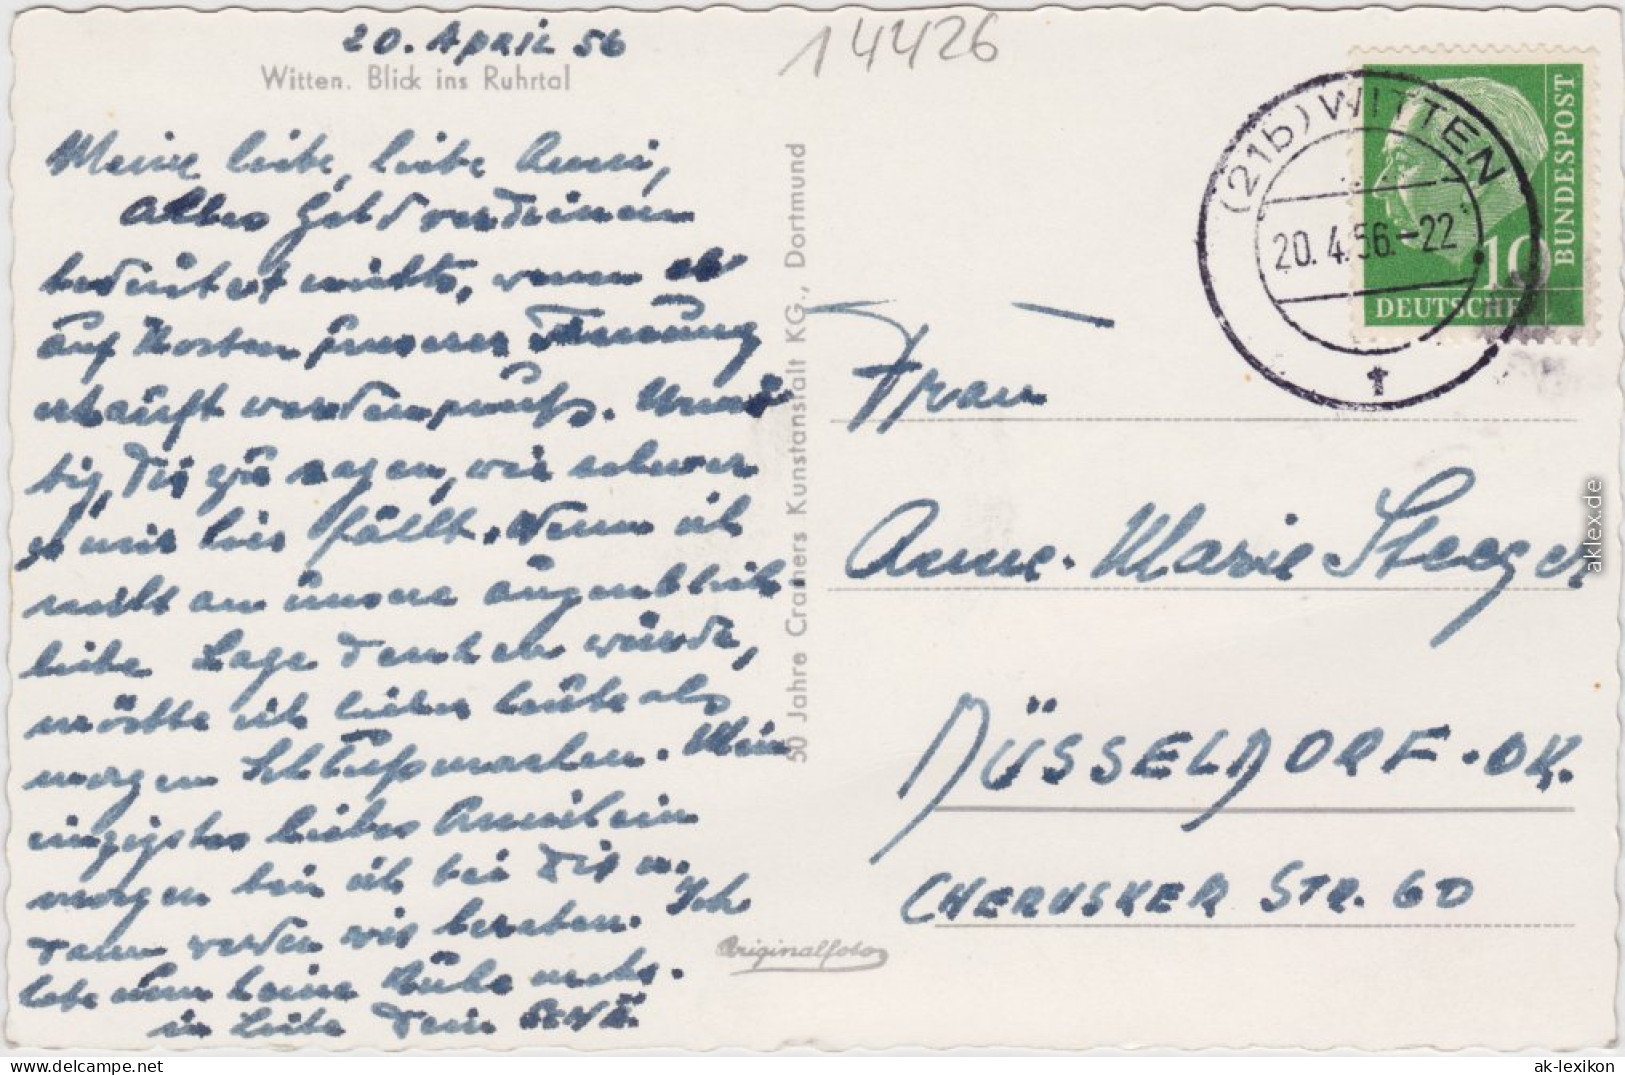 20. April 56
Witten. Blick ins Ruhrtal
14426
Meine liebe, liebe Anni,
alles Geld verdienen
bedeutet nichts, wenn es
auf Kosten unserer Trennung
erkauft werden muß.
Dir zu sagen, wie schwer
es mir hier fällt. Wenn ich
nicht an unsere augenblick
liche Lage denken würde,
möchte ich lieber heute als
morgen Schluß machen. Mein
einzigstes liebes Annilein
morgen bin ich bei Dir u.
dann werden wir beraten. Ich
habe nun keine Ruhe mehr.
in Liebe Dein René
50 Jahre Cramers Kunstanstalt KG., Dortmund
Originalfoto
(21b) WITTEN
20.4.56.-22
t
10
DEUTSCHE
BUNDESPOST
Frau
Anne-Marie Steeger
DÜSSELDORF-OK.
CHERUSKER STR. 60
aklex.de
ak-lexikon